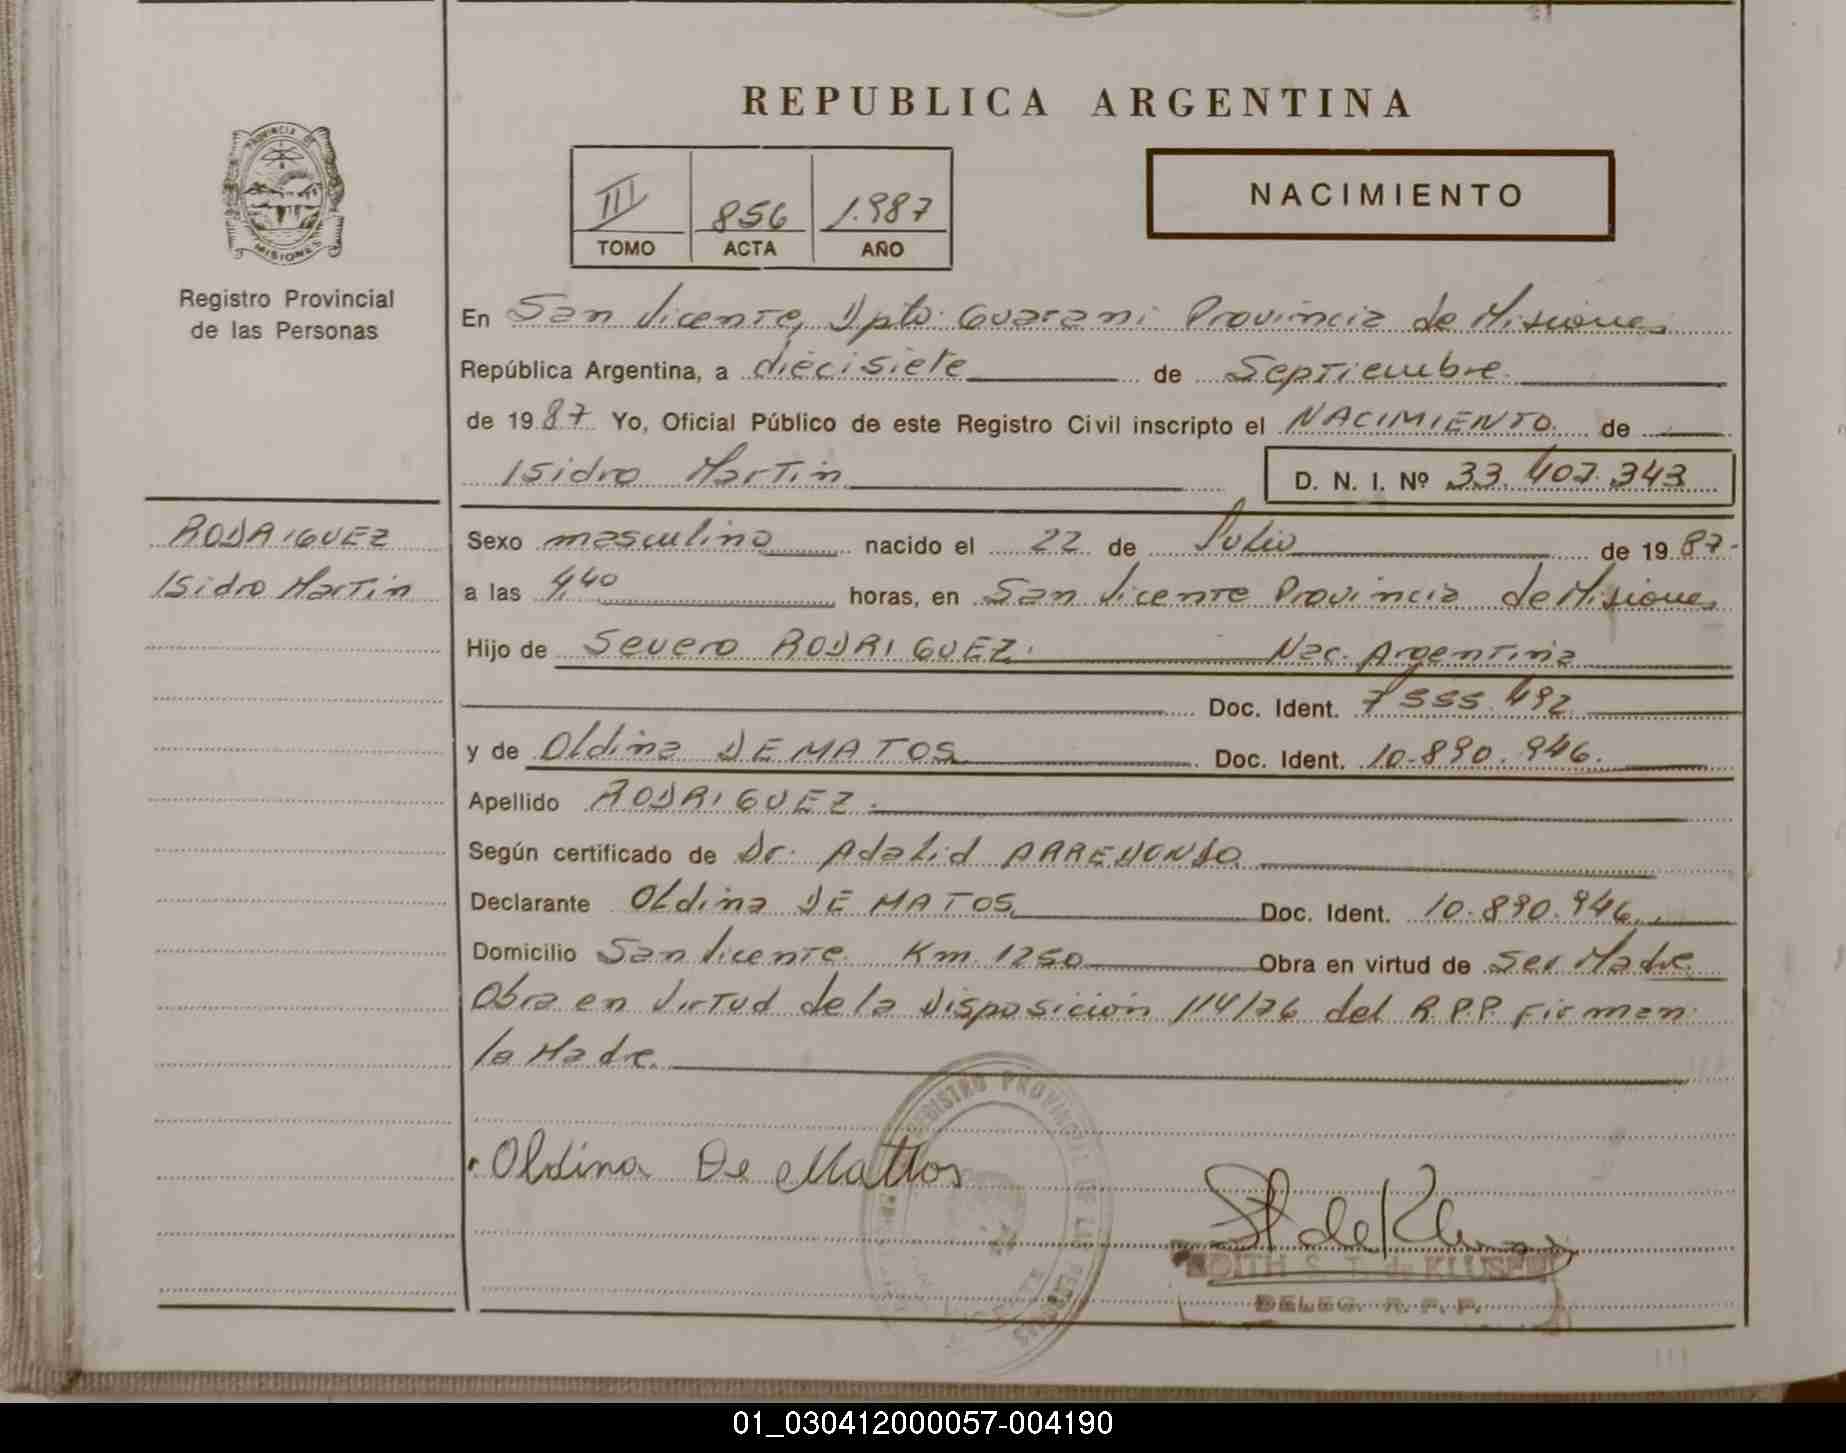 REPUBLICA ARGENTINA
PROVINCIA DE
MISIONES
Registro Provincial
de las Personas
III 856 1.987
TOMO ACTA AÑO
NACIMIENTO
En San Vicente, Dpto. Guarani Provincia de Misiones
República Argentina, a diecisiete de Septiembre
de 19 87 Yo, Oficial Público de este Registro Civil inscripto el NACIMIENTO de
Isidro Martin D. N. I. Nº 33.407.343
RODRIGUEZ
Isidro Martin
Sexo masculino nacido el 22 de Julio de 19 87.
a las 4,40 horas, en San Vicente Provincia de Misiones
Hijo de Severo RODRIGUEZ. Nac. Argentina
Doc. Ident. 7 555.492
y de Oldina DE MATOS Doc. Ident. 10.890.946.
Apellido RODRIGUEZ.
Según certificado de Dr. Adalid ARREDONDO
Declarante Oldina DE MATOS Doc. Ident. 10.890.946.
Domicilio San Vicente Km 1250 Obra en virtud de ser Madre
Obra en virtud de la Disposición 114/76 del R.P.P. Firman
la Madre.
Oldina De Mattos
REGISTRO PROVINCIAL DE LAS PERSONAS
EDITH S. T. de KLUSENER
DELEG. R. P. P.
01_030412000057-004190